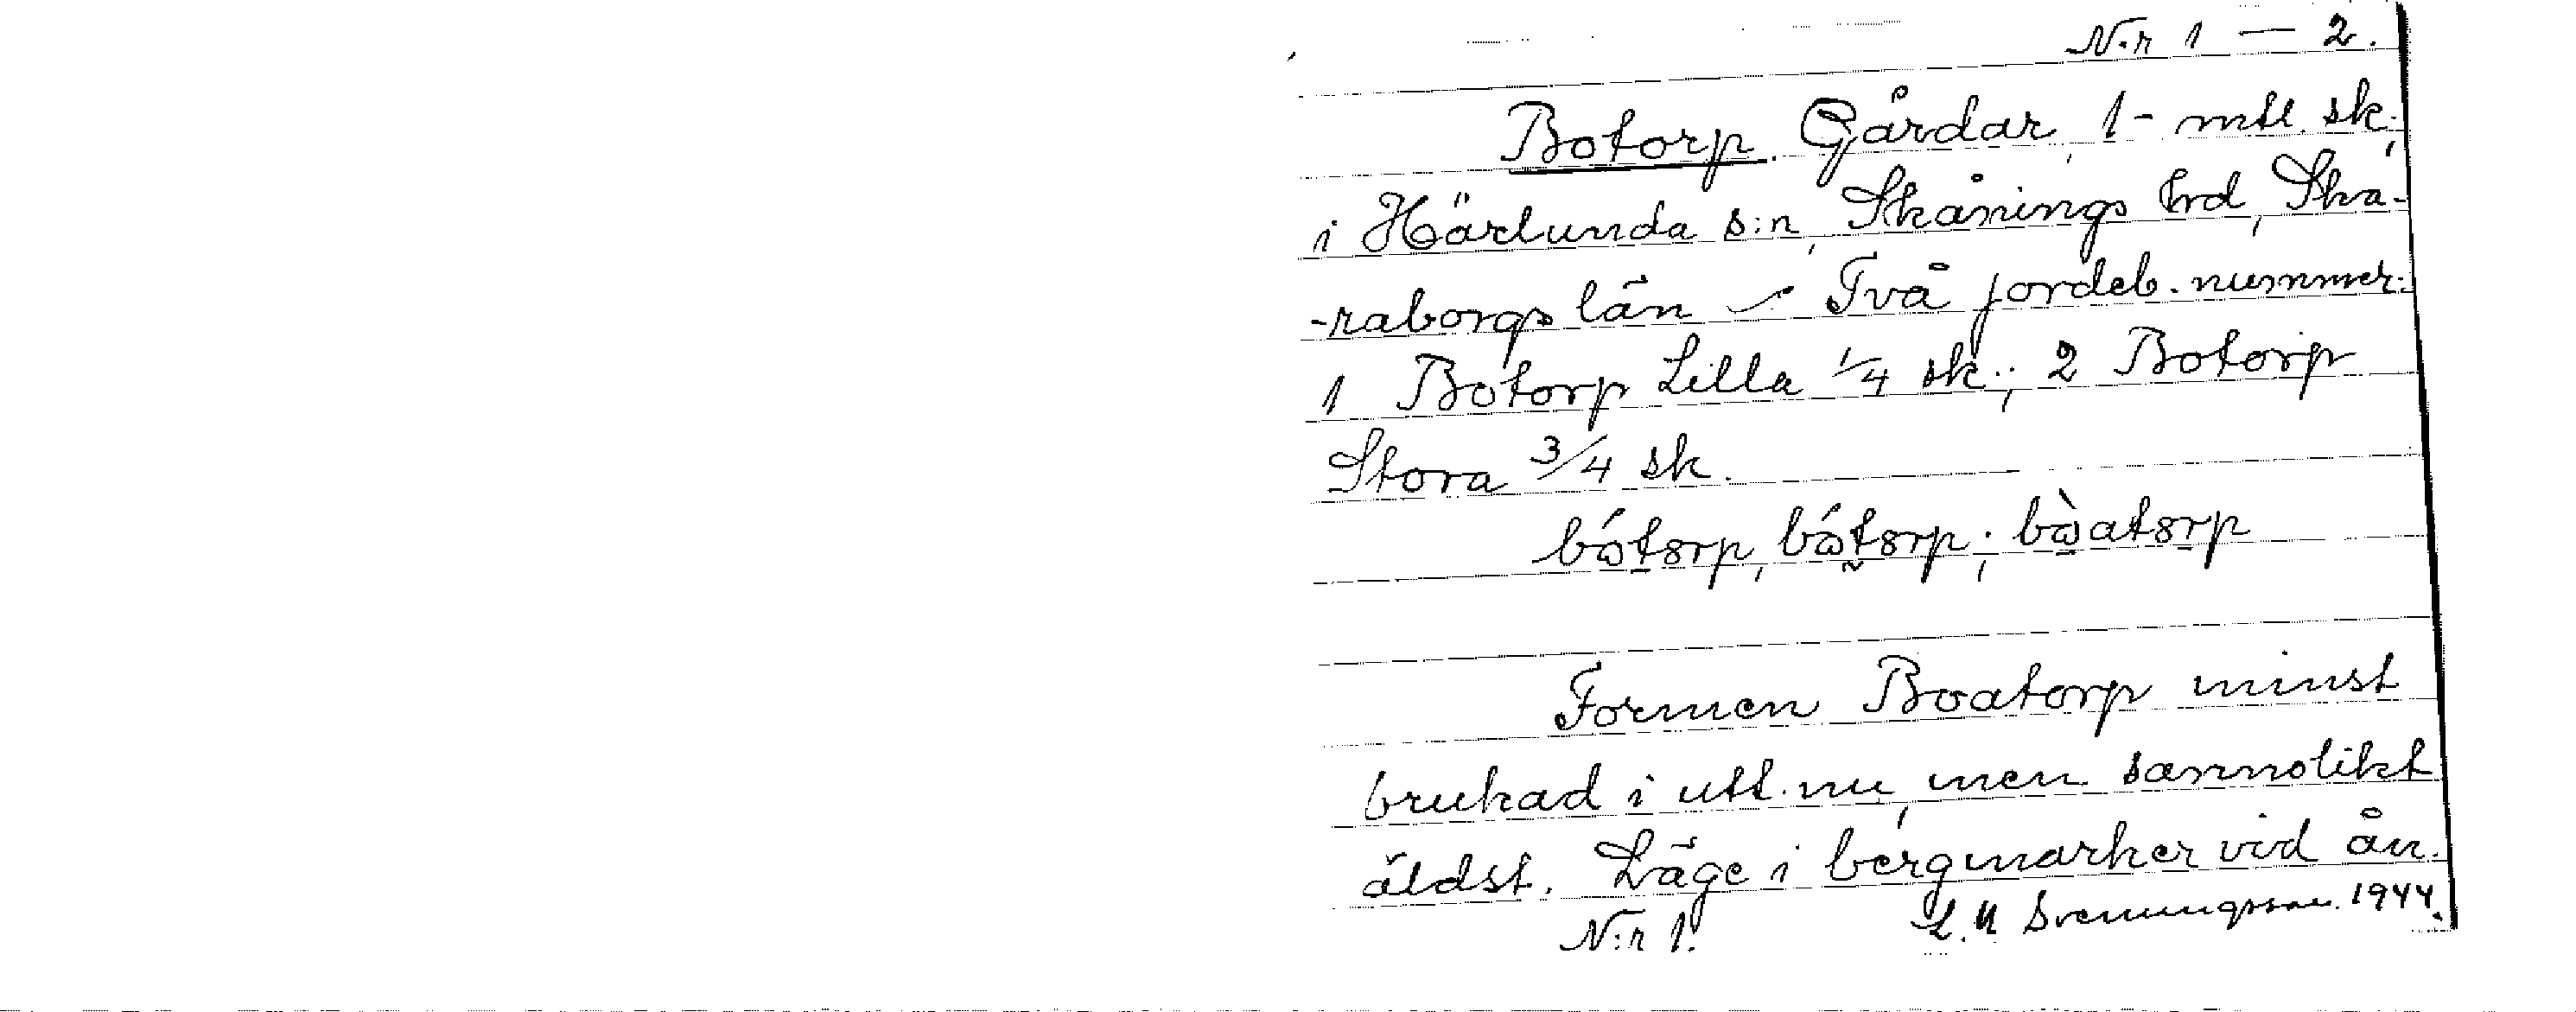 N:r 1 — 2.
Botorp. Gårdar, 1 - mtl. sk.,
i Härlunda s:n, Skånings hrd, Ska-
-raborgs län - Två jordeb. nummer:
1 Botorp Lilla 1/4 sk.; 2 Botorp
Stora 3/4 sk.
Formen Boatorp minst
brukad i utt. nu, men sannolikt
äldst. Läge i bergmarker vid ån.
N:r 1. Svenungsson. 1944.